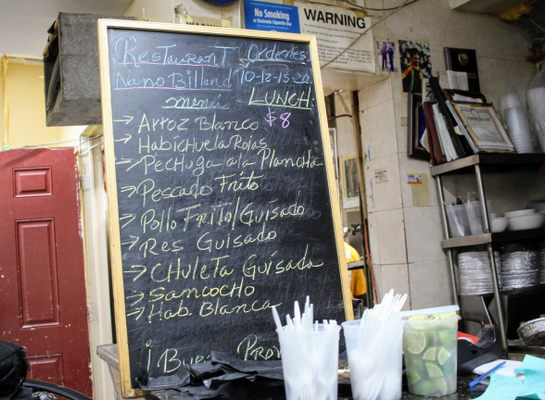 Restaurant Ordenes:
Nano Billard $10-12-15-20
menú LUNCH:
→ Arroz Blanco $8
→ Habichuela Rojas
→ Pechuga a la Plancha
→ Pescado Frito
→ Pollo Frito/Guisado
→ Res Guisado
→ Chuleta Guisada
→ Sancocho
→ Hab. Blanca
¡Buen Prov
No Smoking
WARNING